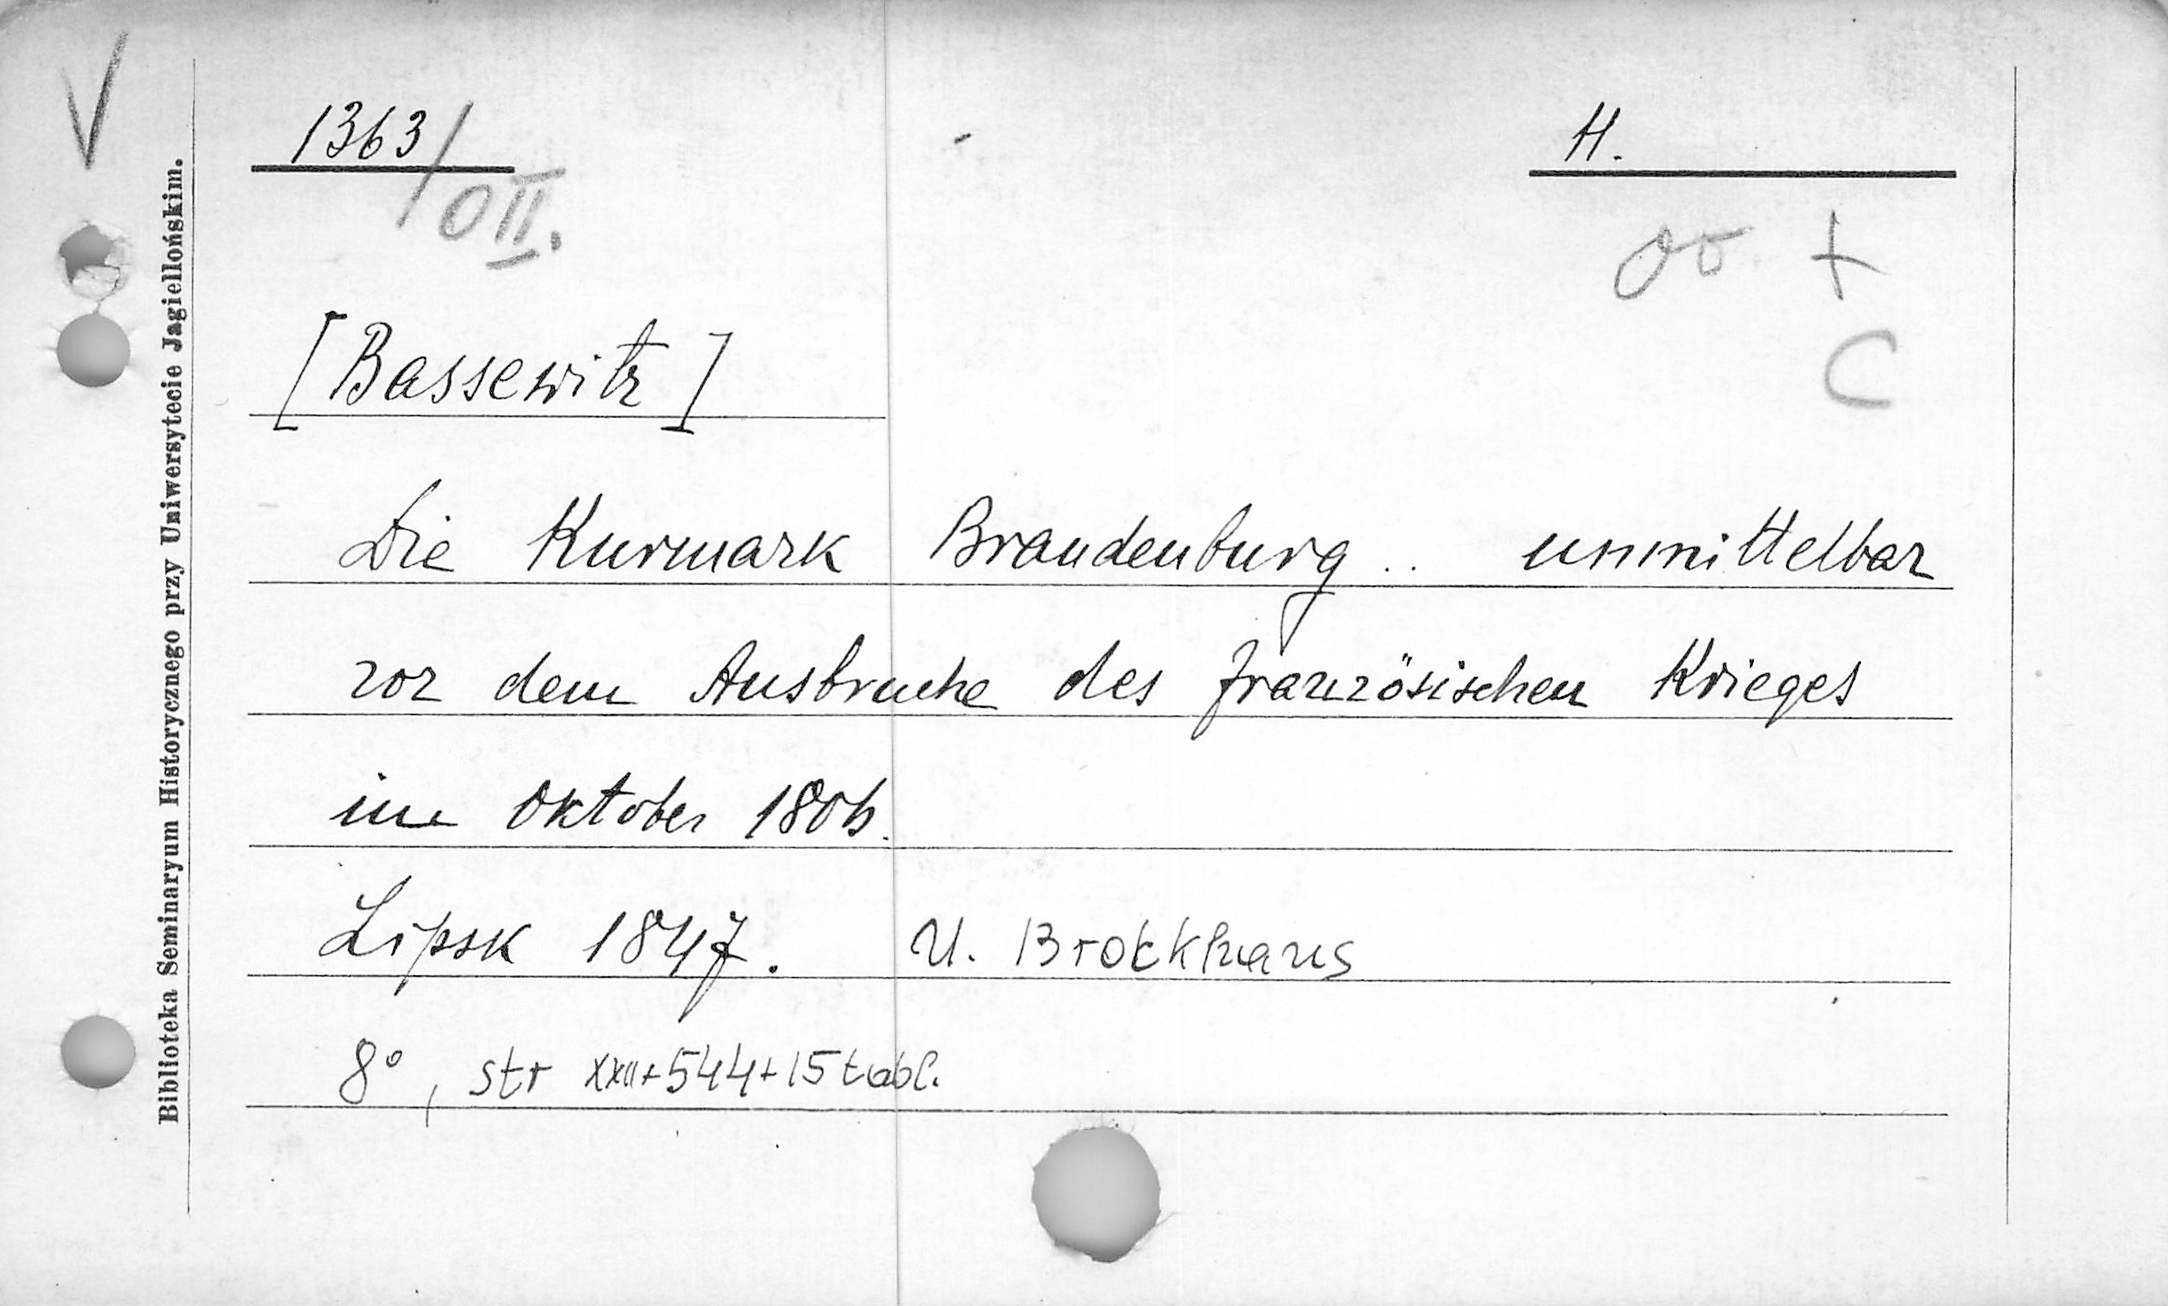 V
1363/OII.
H.
do +
C
[Bassewitz]
Die Kurmark Brandenburg .. unmittelbar
vor dem Ausbruche des französischen Krieges
im Oktober 1806.
Lipsk 1847. U. Brockhaus
8°, str XXII+544+15 tabl.
Biblioteka Seminaryum Historycznego przy Uniwersytecie Jagiellońskim.